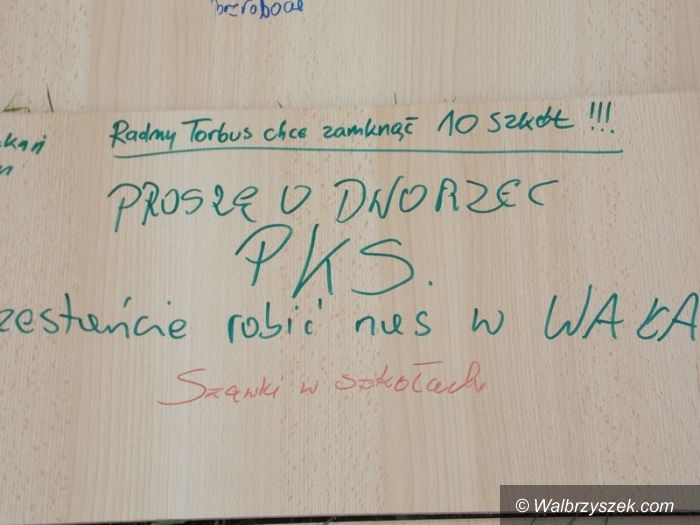 bezrobocie
Radny Torbus chce zamknąć 10 szkół !!!
PROSZĘ O DWORZEC
PKS.
zestańcie robić nas w WAŁA
w szkołach
© Walbrzyszek.com